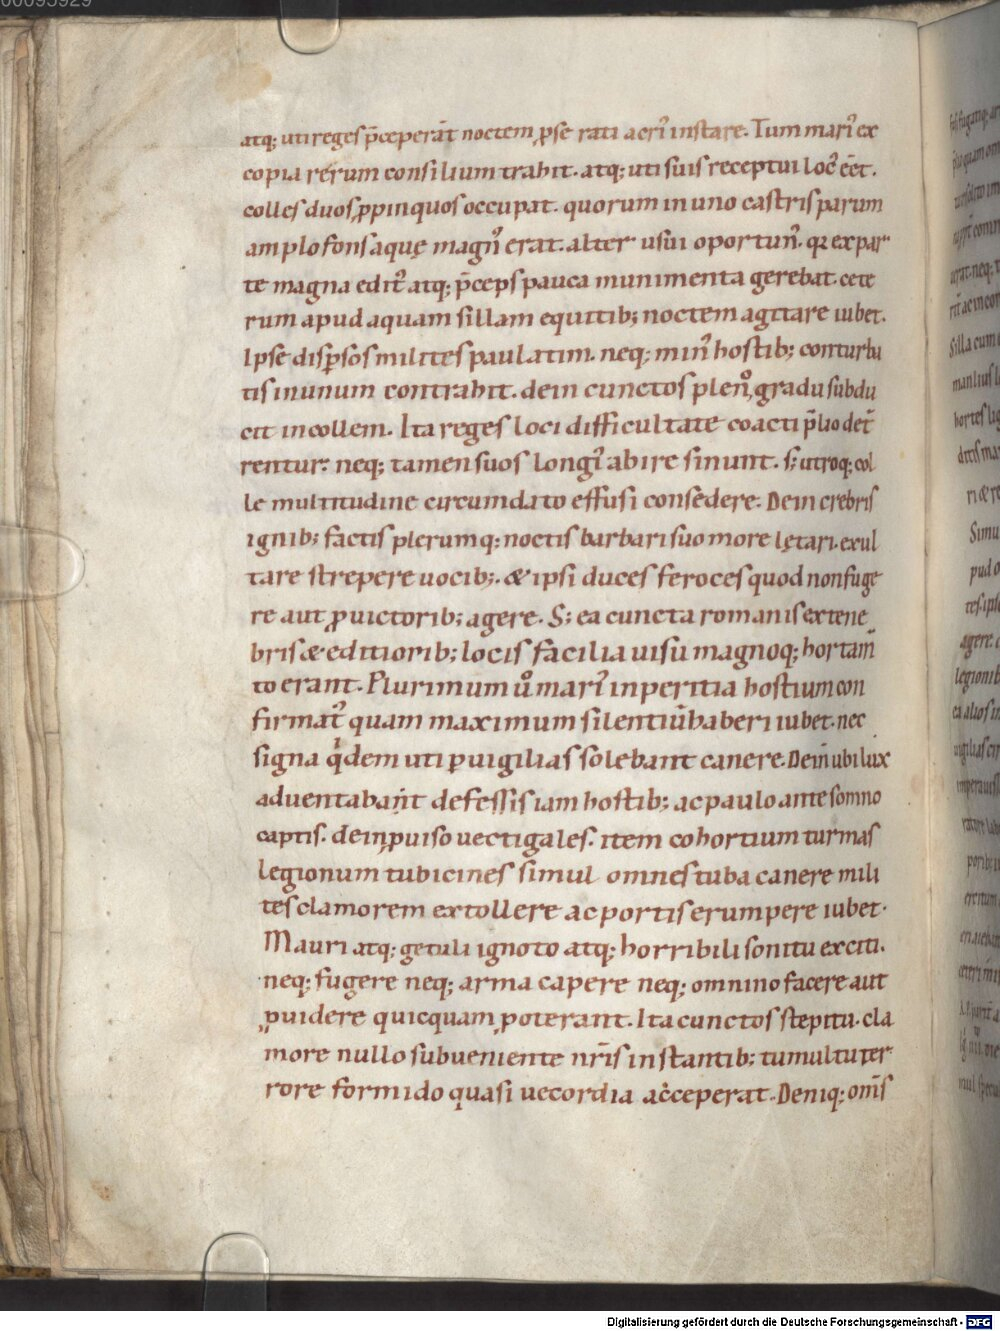 atq; uti reges p̄ceperāt noctem ꝓse rati acri᷑ instare. Tum mari᷑ ex
copia rerum consilium trahit. atq; uti suis receptui loc᷑ eēt.
colles duos ꝓpinquos occupat. quorum in uno castris parum
amplo fons aquę magn᷑ erat. alter usui oportun᷑. qꝛ ex par
te magna edit᷑ atq; p̄ceps pauca munimenta gerebat. cete
rum apud aquam sillam equitib; noctem agitare iubet.
Ipse disp̱sos milites paulatim. neq; min᷑ hostib; conturba
tis in unum contrahit. dein cunctos pleno gradu subdu
cit in collem. Ita reges loci difficultate coacti p̄lio det̄
rentur. neq; tamen suos longi᷑ abire sinunt. s; utroq; col
le multitudine circumdato effusi consedere. Dein crebris
ignib; factis plerumq; noctis barbari suo more lętari. exul
tare strepere uocib;. & ipsi duces feroces quod non fuge
re aut ꝓ uictorib; agere. S; ea cuncta romanis ex tene
bris & editiorib; locis facilia uisu magnoq; hortam̄
to erant. Plurimum ů mari᷑ inperitia hostium con
firmat᷑ quam maximum silentiū haberi iubet. nec
signa qͥdem uti ꝑ uigilias solebant canere. Dein ubi lux
aduentabant defessis iam hostib; ac paulo ante somno
captis. de inꝓuiso uectigales. item cohortium turmas
legionum tubicines simul omnes tuba canere mili
tes clamorem extollere ac portis erumpere iubet.
Mauri atq; getuli ignoto atq; horribili sonitu exciti.
neq; fugere neq; arma capere neq; omnino facere aut
ꝓuidere quicquam poterant. Ita cunctos stepitu. cla
more nullo subueniente nr̄is instantib; tumultu ter
rore formido quasi uecordia acceperat. Deniq; om̄s